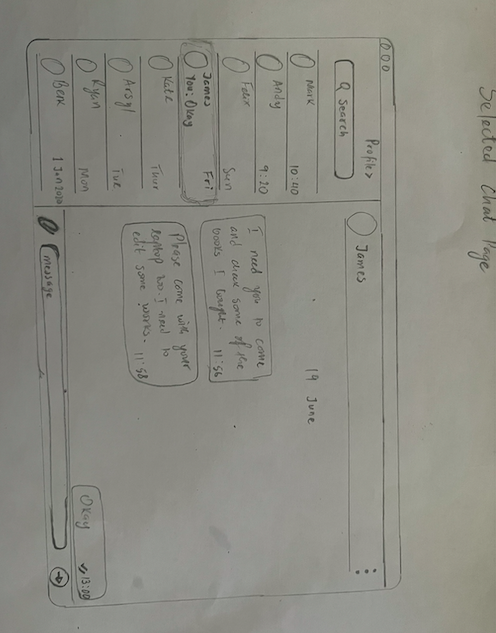 Selected Chat Page
Profile >
Search
Mark 10:40
Andy 9:20
Felix Sun
James
You: Okay Fri
Kate Thur
Arsyl Tue
Ryon Mon
Benk 1 Jan 2020
James
19 June
I need you to come
and check some of the
books I bought. 11:56
Please come with your
laptop too. I need to
edit some works. 11:58
Okay 13:00
message